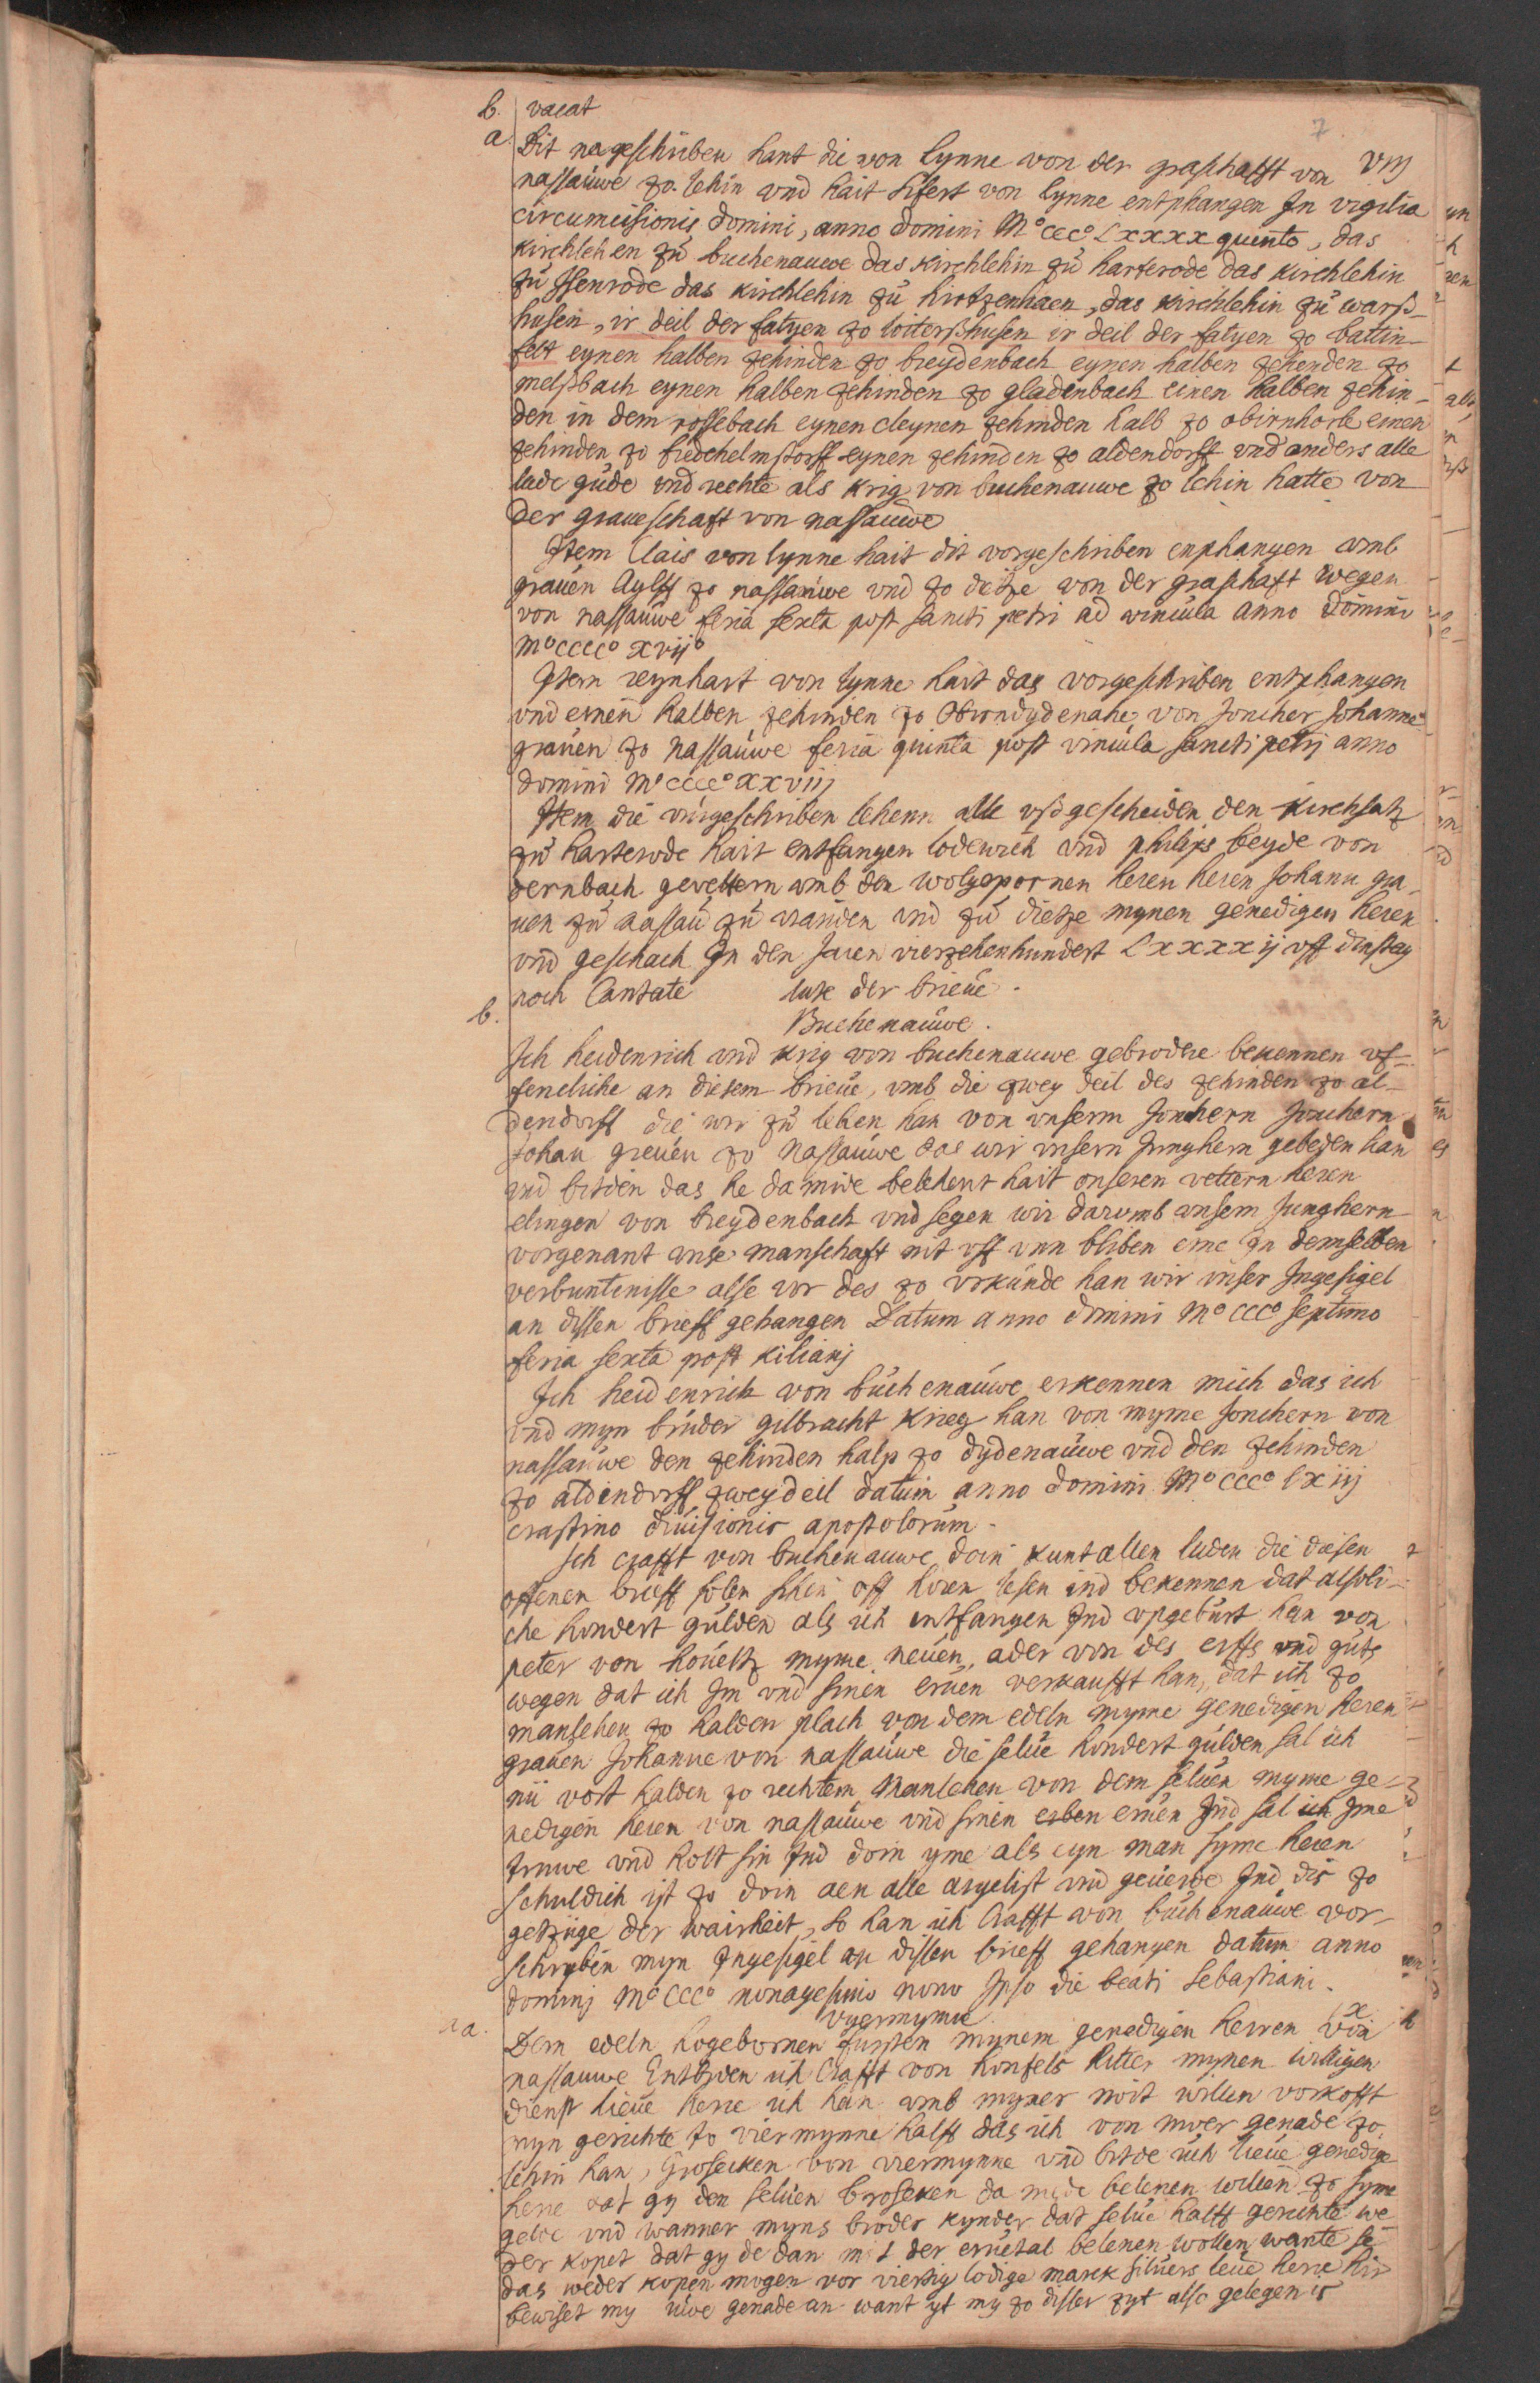 b. vacat
7
a. Dit nageschriben hant die von lynne von der graschafft von VIIJ
nassauwe zo lehin vnd hait Sifert von lynne entphangen In vigilia
circumcisionis domini, anno domini M° ccc° Lxxxx quinto, das
kirchlehen zu buchenauwe das kirchlehin zu harterode das kirchlehin
zu Issenrode das kirchlehin zu hirtzenhaen, das kirchlehin zu warß-
husen, ir deil der fatyen zo witterßhusen ir deil der fatyen zo battin-
felt eynen halben zehinden zo breydenbach eynen halben zehenden zo
melßbach eynen halben zehinden zo gladenbach einen halben zehin-
den in dem rossebach eynen cleynen zehinden halb zo obirnhorle einen
zehinden zo fredehelmstorff eynen zehinden zo aldendorff vnd anders alle
lude gude vnd rechte als krig von buchenauwe zo lehin hatte von
der graueschaft von nassauwe
Item Clais von lynne hait dit vorgeschriben enphangen vmb
grauen Aylff zo nassauwe vnd zo dietze von der graschaft wegen
von nassauwe feria sexta post sancti petri ad vincula anno domini
m° cccc° xvij°
Item reynhart von lynne hait das vorgeschriben entphangen
vnd einen halben zehinden zo Obirndydenahe von Joncher Johanne
grauen zo Nassauwe feria quinta post vincula sancti petrj anno
domini M° cccc° xxviij
Item die vurgeschriben lehenn alle vßgescheiden den kirchsatz
zu harterode hait entfangen lodewich vnd philips beyde von
dernbach gevettern vmb den wolgepornen heren heren Johann gra-
uen zu nassau zu vianden vnd zu dietze mynen genedigen heren
vnd geschach In den Jaren vierzehenhundert Lxxxxij vff dinstag
noch Cantate lute der brieue.
b. Buchenauwe.
Ich heidenrich vnd krig von buchenauwe gebrodere bekennen vf-
fencliche an diesem brieue, vmb die zwey deil des zehinden zo al-
dendorff die wir zu lehen han von vnserm Jonchern Jonchern
Johan greuen zo Nassauwe das wir vnsern Junghern gebeden han
vnd bidden das he da mide belehent hait onseren vettern heren
elingen von breydenbach vnd segen wir darumb vnserm Junghern
vorgenant vnse manschaft mit vff vnn bliben eme In demselben
verbuntenisse alse vor des zo vrkunde han wir vnser Ingesigel
an dissen brieff gehangen Datum anno domini M° ccc° septimo
feria sexta post kilianj
Ich heidenrich von buchenauwe erkennen mich das ich
vnd myn bruder gilbracht krieg han von myme Jonchern von
nassauwe den zehinden halp zo dydenauwe vnd den zehinden
zo aldendorff zweydeil datum anno domini M° ccc° Lxiij
crastino diuisionis apostolorum.
Ich crafft von buchenauwe doin kunt allen luden die diesen
offenen brieff solen sehen off horen lesen ind bekennen dat alsoli-
che hondert gulden als ich entfangen Ind vpgeburt han von
peter von houeltz myme neuen, ader von des erffs vnd guts
wegen dat ich Im vnd sinen eruen verkaufft han, dat ich zo
manlehen zo halden plach von dem edeln myme genedigen heren
grauen Johanne von nassauwe die selue hondert gulden sal ich
nu vort halden zo rechtem Manlehen von dem seluen myme ge-
nedigen heren von nassauwe vnd sinen erben eruen Ind sal ich Ime
truwe vnd holt sin Ind doin yme als eyn man syme heren
schuldich ist zo doin aen alle argelist vnd geuerde Ind dis zo
getzuge der wairheit, so han ich Crafft von buchenauwe vor-
schryben myn Ingesigel an dissen brieff gehangen datum anno
dominj M° ccc° nonagesimo nono Ipso die beati Sebastiani.
vyermynne
a. Dem edeln hogebornen fursten mynem genedigen herren von
nassauwe Entbyden ich Crafft von honfels Ritter mynen willigen
dienst lieue herre ich han vmb myner noit willen vorkofft
myn gerichte zo viermynne halff das ich von uwer genade zo
lehin han, broseken von viermynne vnd bitde uch lieue genedige
herre dat gy den seluen broseken da mide belenen willen zo syme
gelde vnd wanner myns broder kynder dat selue halff gerichte we
der kopet dat gy de dan mit der eruetal belenen wollen wante se
das weder kopen mogen vor viertzig lodige marck siluers leue herre hir
bewiset my uwe genade an want yt my zo disser zyt also gelegen is